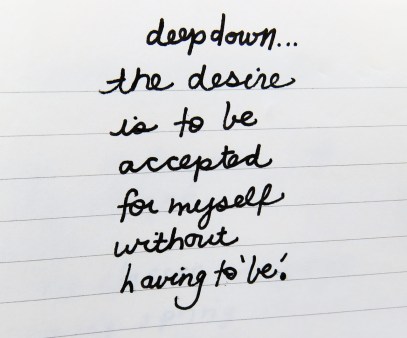 deep down...
the desire
is to be
accepted
for myself
without
having to 'be'.